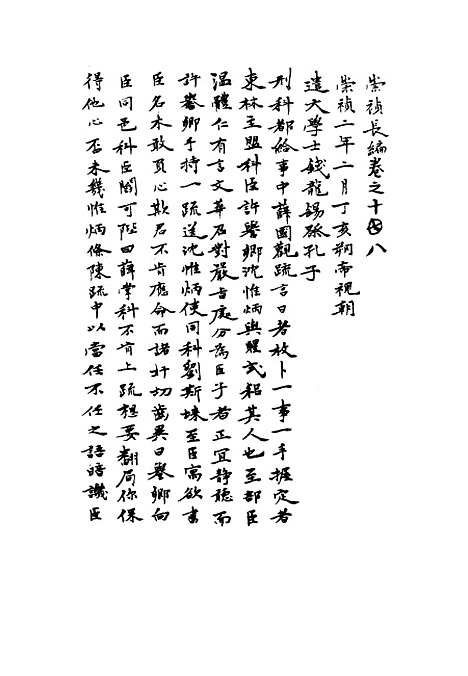 崇禎長編卷之十八
崇禎二年二月丁亥朔帝視朝
遣大學士錢龍錫祭孔子
刑科都給事中薛國觀疏言日者枚卜一事一手握定者
東林主盟科臣許譽卿沈惟炳與瞿式耜其人也至部臣
溫體仁有言文華召對嚴旨處分為臣子者正宜靜聽而
許譽卿手持一疏送沈惟炳使同科劉斯琜至臣寓欲書
臣名未敢頁心欺君不肯應命而諸奸切齒異日譽卿向
臣同邑科臣閻可陛曰薛掌科不肯上疏想要翻局你保
得他心否未幾惟炳條陳疏中以當任不任之語暗譏臣